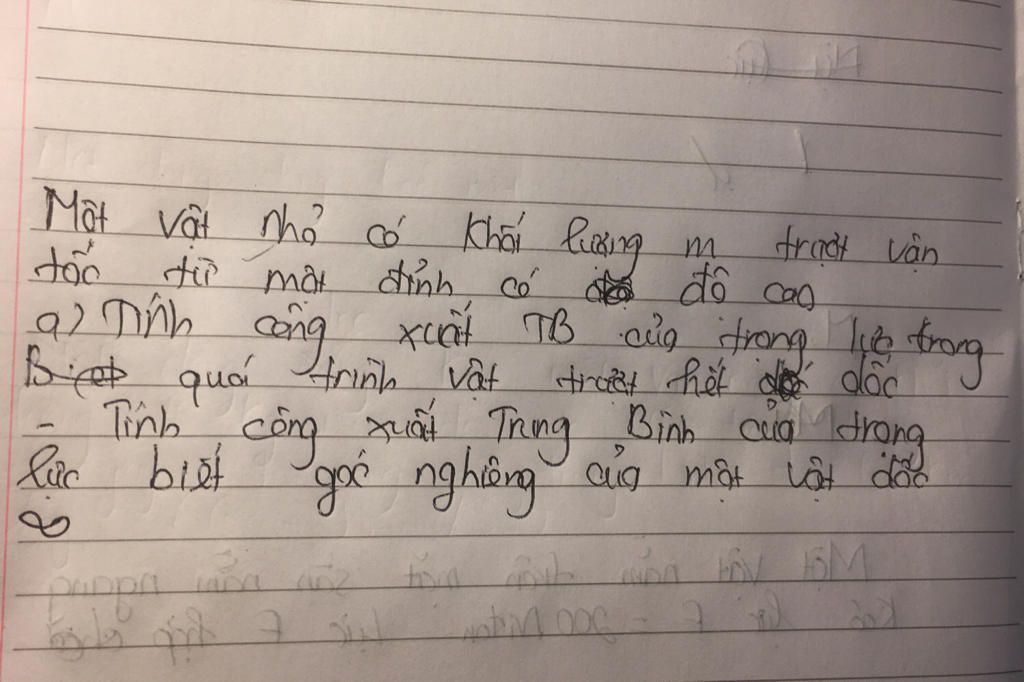 Một vật nhỏ có khối lượng m trượt vận
tốc từ một đỉnh có độ cao
a) Tính công xuất TB của trọng lực trong
quá trình vật trượt hết dốc
- Tính công xuất Trung Bình của trọng
lực biết góc nghiêng của một vật dốc
∞